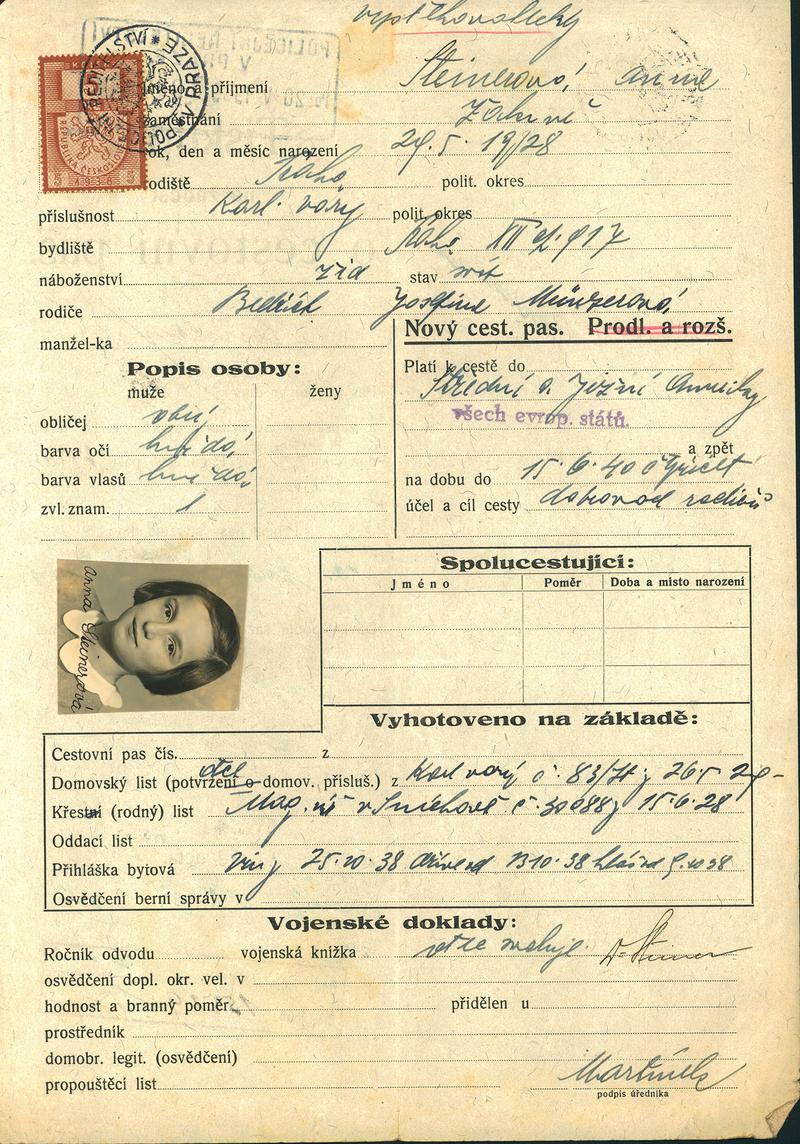 vystěhovalecký
Jméno a příjmení Steinerová, Anna
zaměstnání
rok, den a měsíc narození 29. 5. 19/28
rodiště Praha polit. okres
příslušnost Karl. Vary polit. okres
bydliště Praha XII čp. 917
náboženství žid stav
rodiče Bedřich Josefine Münzerová
manžel-ka
Nový cest. pas. Prodl. a rozš.
Popis osoby:
muže ženy
obličej
barva očí hnědá
barva vlasů hnědá
zvl. znam.
Platí k cestě do
Střední a Jižní Ameriky
všech evrop. států.
a zpět
na dobu do 15. 6. 40
účel a cíl cesty doprovod rodičů
Anna Steinerová
Spolucestující:
Jméno Poměr Doba a místo narození
Vyhotoveno na základě:
Cestovní pas čís. z
otce
Domovský list (potvrzení o domov. přísluš.) z Karl. Vary č. 83/
Křestní (rodný) list Mag. v Smíchově č. 30088 15. 6. 28
Oddací list
Přihláška bytová 25. 10. 38
Osvědčení berní správy v
Vojenské doklady:
Ročník odvodu vojenská knížka otec svoluje Dr Steiner
osvědčení dopl. okr. vel. v
hodnost a branný poměr přidělen u
prostředník
domobr. legit. (osvědčení)
propouštěcí list
podpis úředníka